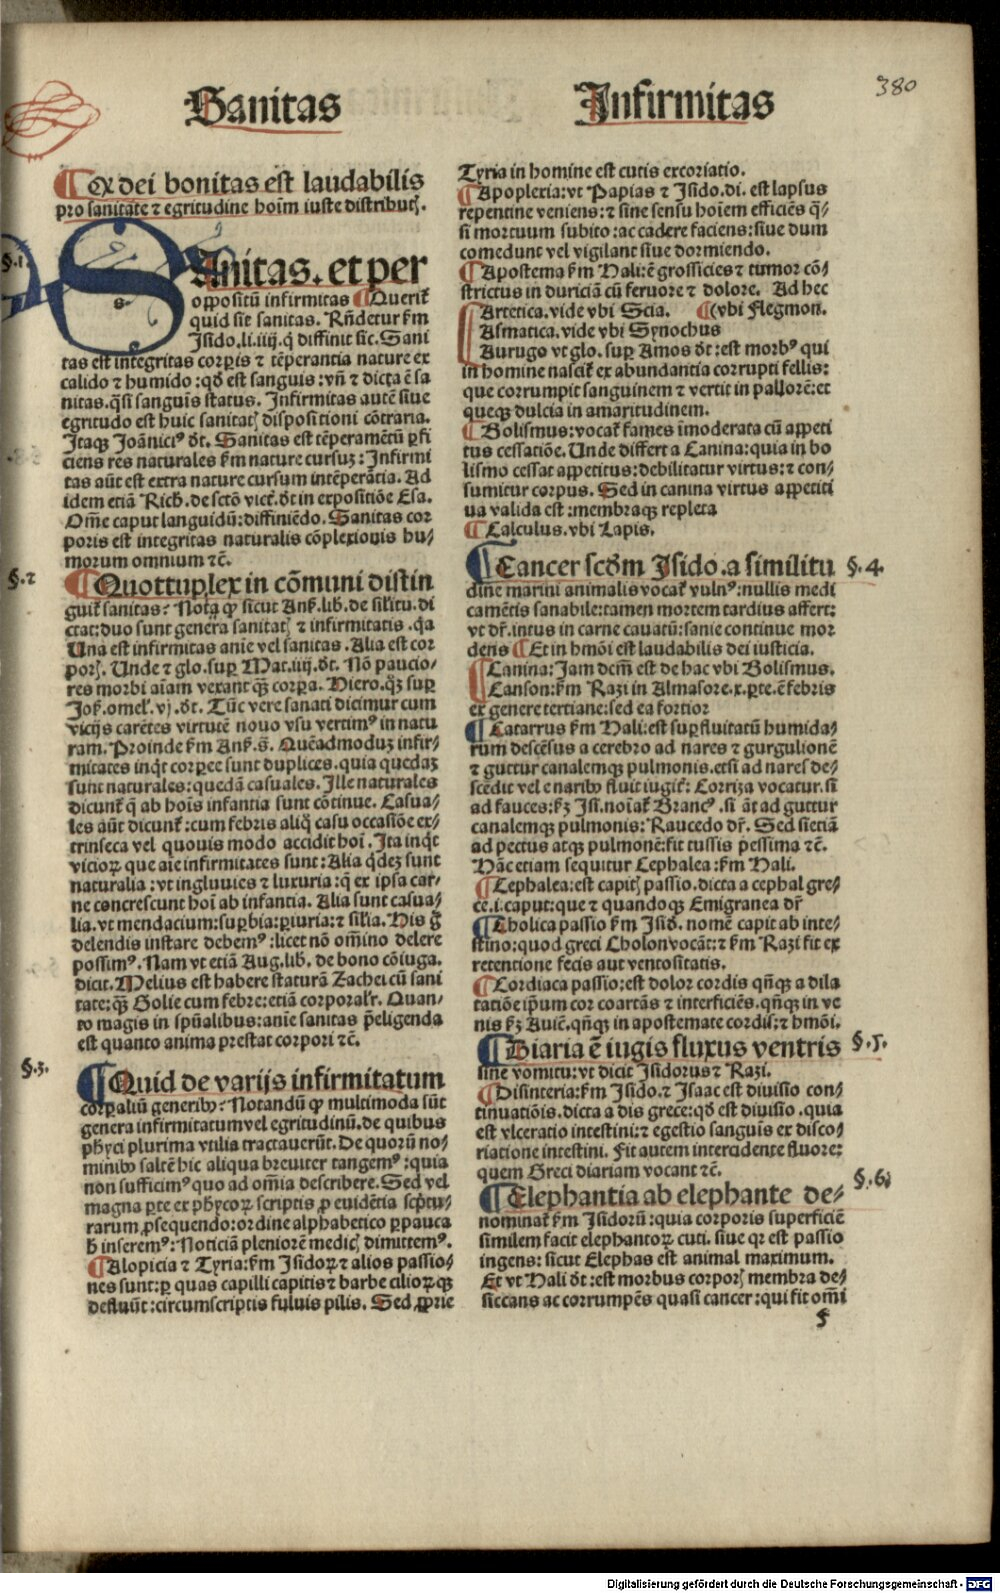 Sanitas
Infirmitas
380
¶ Ex dei bonitas est laudabilis
pro sanitate ⁊ egritudine hoīm iuste distributꝭ.
§.1
SAnitas. et per
oppositū infirmitas ¶ Querit᷑
quid sit sanitas. Rñdetur ẜm
Isido.li.iiij.q̄ diffinit sic. Sani
tas est integritas corpꝑis ⁊ tēperantia nature ex
calido ⁊ humido :qd̓ est sanguis :vñ ⁊ dicta ē sa
nitas.q̄si sanguīs status. Infirmitas autē siue
egritudo est huic sanitatꝭ dispositioni cōtraria.
Itaqꝫ Joānici⁹ d̓t. Sanitas est tēperamētū ꝑfi
ciens res naturales ẜm nature cursuꝫ : Infirmi
tas aūt est extra nature cursum intēperātia. Ad
idem etiā Rich. de sctō vict̓. d̓t in expositiōe Esa.
Om̄e caput languidū: diffiniēdo. Sanitas cor
poris est integritas naturalis cōplexionis hu⸗
morum omnium ⁊c̄.
§.2
¶ Quottuplex in cōmuni distin
guit᷑ sanitas: Nota ꝙ sicut Ans̓.lib. de sil̓itu. di
ctat: duo sunt genera sanitatꝭ ⁊ infirmitatis .q̄a
Una est infirmitas anīe vel sanitas .Alia est cor
porꝭ. Unde ⁊ glo. suꝑ Mat. iiij. d̓t. Nō paucio⸗
res morbi aīam vexant qꝫ̄ corpꝑa. Hiero. q̓ꝫ suꝑ
Jos̓. omel̓. vj. d̓t. Tūc vere sanati dicimur cum
vicijs carētes virtutē nouo vsu vertim⁹ in natu
ram. Proinde ẜm Ans̓.s̄. Quēadmoduꝫ infir⸗
mitates inq̓t corpꝑee sunt duplices. quia quedaꝫ
sunt naturales: quedā casuales. Ille naturales
dicunt᷑ q̄ ab hoīs infantia sunt cōtinue. Casua⸗
les aūt dicunt᷑: cum febris aliq̄ casu occasiōe ex⸗
trinseca vel quouis modo accidit hoī. Ita inq̓t
vicioꝝ que aīe infirmitates sunt: Alia q̓deꝫ sunt
naturalia : vt ingluuies ⁊ luxuria: q̄ ex ipsa car⸗
ne concrescunt hoī ab infantia. Alia sunt casua⸗
lia. vt mendacium: suꝑbia: ꝑiuria: ⁊ sil̓ia. His ḡ
delendis instare debem⁹ : licet nō om̄ino delere
possim⁹. Nam vt etiā Aug. lib̓. de bono cōiuga.
dicit. Melius est habere staturā Zachei cū sani
tate: qꝫ̄ Golie cum febre: etiā corporal̓r. Quan⸗
to magis in spūalibus: anīe sanitas p̄eligenda
est quanto anima prestat corpori ⁊c̄.
§.3.
¶ Quid de varijs infirmitatum
corꝑaliū generibꝫ: Notandū ꝙ multimoda sūt
genera infirmitatum vel egritudinū. de quibus
phyci plurima vtilia tractauerūt. De quorū no⸗
minibꝫ saltē hic aliqua breuiter tangem⁹ : quia
non sufficim⁹ quo ad om̄ia describere. Sed vel
magna ꝑte ex phycoꝝ scriptis ꝓ euidētia scp̓tu⸗
rarum ꝓsequendo: ordine alphabetico ꝑpauca
h̓ inserem⁹: Noticiā pleniorē medicꝭ dimittem⁹.
¶ Alopicia ⁊ Tyria: ẜm Isidoꝝ ⁊ alios passio⸗
nes sunt: ꝑ quas capilli capitis ⁊ barbe cilioꝝqꝫ
defluūt : circumscriptis fuluis pilis. Sed ꝓprie
Tyria in homine est cutis excoriatio.
¶ Apoplexia: vt Papias ⁊ Isido. di. est lapsus
repentine veniens: ⁊ sine sensu hoīem efficiēs q̄⸗
si mortuum subito : ac cadere faciens: siue dum
comedunt vel vigilant siue dormiendo.
¶ Apostema ẜm Hali: ē grossicies ⁊ tumor cō⸗
strictus in duriciā cū feruore ⁊ dolore. Ad hec
Artetica. vide vbi Scia. ¶ (vbi Flegmon.
Asmatica. vide vbi Synochus
Aurugo vt glo. suꝑ Amos d̓t: est morb⁹ qui
in homine nascit᷑ ex abundantia corrupti fellis:
que corrumpit sanguinem ⁊ vertit in pallorē: et
queqꝫ dulcia in amaritudinem.
¶ Bolismus: vocat᷑ fames īmoderata cū appeti
tus cessatiōe. Unde differt a Canina: quia in bo
lismo cessat appetitus: debilitatur virtus: ⁊ con⸗
sumitur corpus. Sed in canina virtus appetiti
ua valida est : membraqꝫ repleta
¶ Calculus. vbi Lapis.
§.4.
¶ Cancer scd̓m Isido. a similitu
dine marini animalis vocat᷑ vuln⁹: nullis medi
camētis sanabile: tamen mortem tardius affert:
vt dr̓. intus in carne cauatū: sanie continue mor
dens ¶ Et in hmōi est laudabilis dei iusticia.
Canina: Jam dcm̄ est de hac vbi Bolismus.
Canson: ẜm Razi in Almasore. x. ꝑte. ē febris
ex genere tertiane: sed ea fortior
¶ Catarrus ẜm Hali: est suꝑfluitatū humida⸗
rum descēsus a cerebro ad nares ⁊ gurgulionē
⁊ guttur canalemqꝫ pulmonis. etsī ad nares de⸗
scēdit vel e naribꝫ fluit iugit̓: Corriza vocatur. sī
ad fauces: ẜꝫ Isi. noīat᷑ Branc⁹ .si āt ad guttur
canalemqꝫ pulmonis: Raucedo dr̓. Sed sī etiā
ad pectus atqꝫ pulmonē: fit tussis pessima ⁊c̄.
Hāc etiam sequitur Cephalea: ẜm Hali.
¶ Cephalea: est capitꝭ passio. dicta a cephal gre⸗
ce. i. caput: que ⁊ quandoqꝫ Emigranea dr̓
¶ Cholica passio ẜm Isid̓. nomē capit ab inte⸗
stino: quod greci Cholon vocāt: ⁊ ẜm Razi fit ex
retentione fecis aut ventositatis.
¶ Cordiaca passio: est dolor cordis qñqꝫ a dila
tatiōe ip̄um cor coartās ⁊ interficiēs. qñqꝫ in ve
nis ẜꝫ Auiē. qñqꝫ in apostemate cordis: ⁊ hmōi.
§.5.
¶ Diaria ē iugis fluxus ventris
sine vomitu: vt dicit Isidorus ⁊ Razi.
¶ Disinteria: ẜm Isido. ⁊ Isaac est diuisio con⸗
tinuatiōis. dicta a dis grece: qd̓ est diuisio .quia
est vlceratio intestini: ⁊ egestio sanguīs ex disco⸗
riatione intestini. Fit autem intercidente fluore:
quem Greci diariam vocant ⁊c̄.
§.6.
¶ Elephantia ab elephante de⸗
nominat᷑ ẜm Isidorū: quia corporis superficiē
similem facit elephantoꝝ cuti. siue qr̓ est passio
ingens: sicut Elephas est animal maximum.
Et vt Hali d̓t : est morbus corporꝭ membra de⸗
siccans ac corrumpēs quasi cancer: qui fit om̄i
f
Digitalisierung gefördert durch die Deutsche Forschungsgemeinschaft - DFG